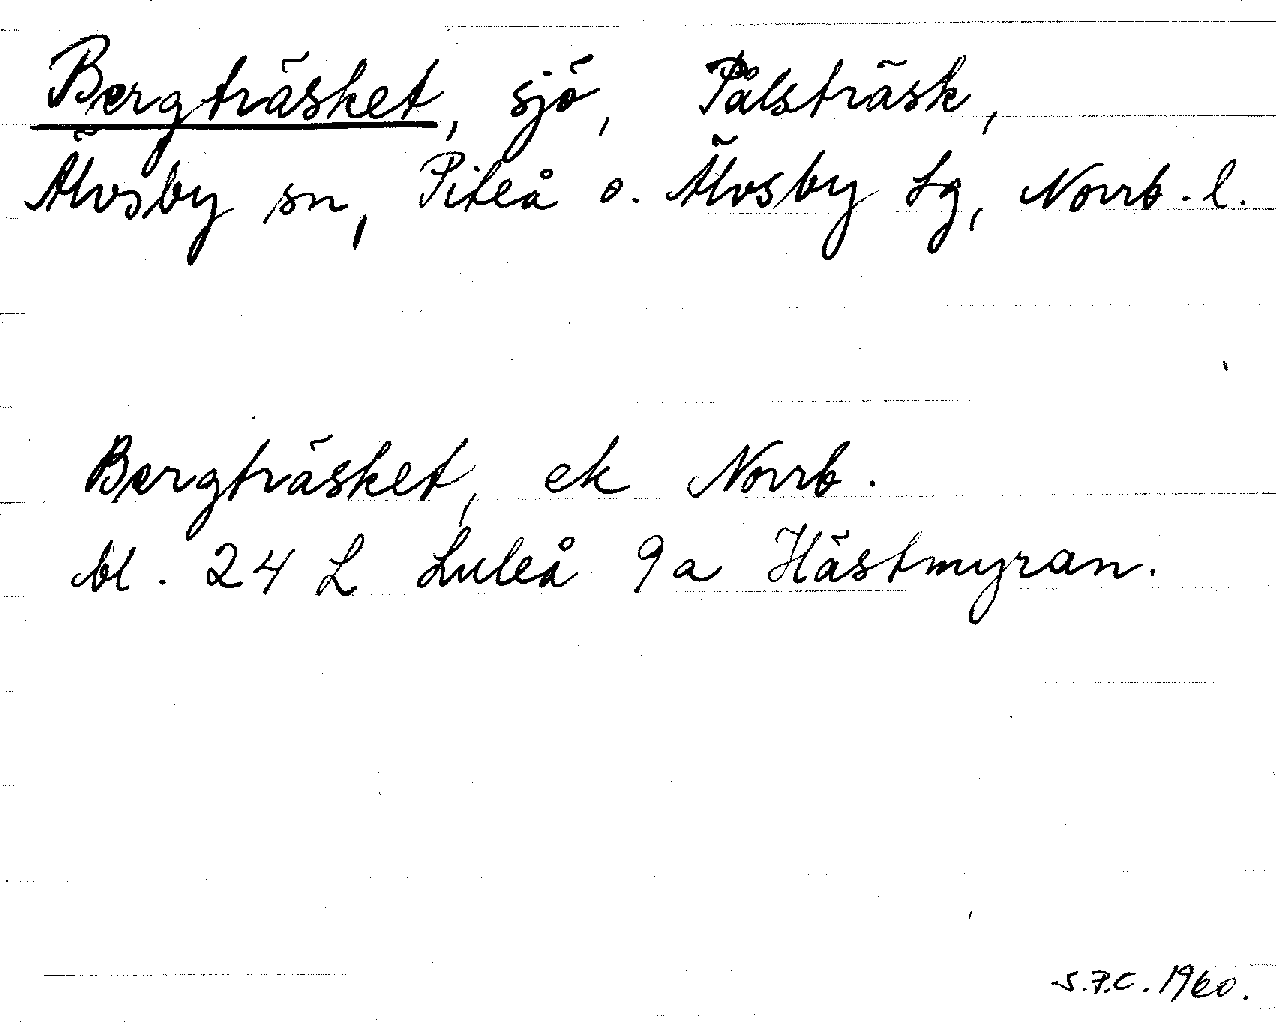 Bergträsket, sjö, Pålsträsk,
Älvsby sn, Piteå o. Älvsby tg, Norrb. l.
Bergträsket, ek Norrb.
bl. 24 L Luleå 9a Hästmyran.
S.F.C. 1960.